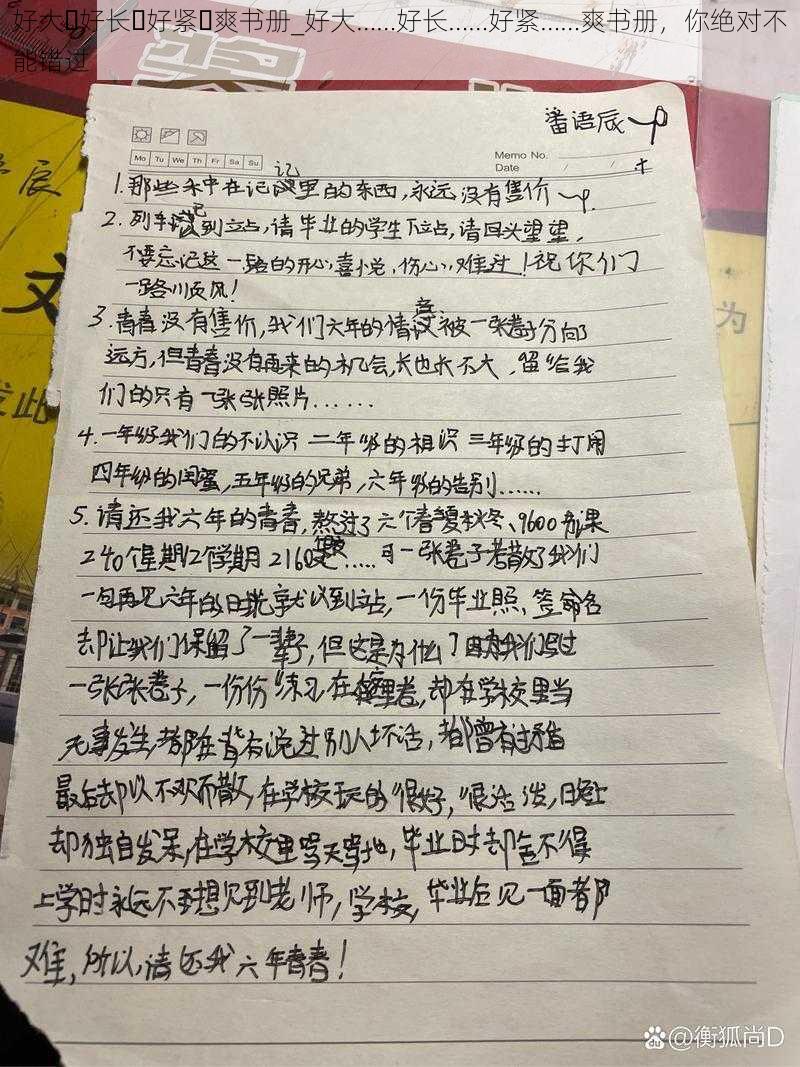 好大□好长□好紧□爽书册_好大……好长……好紧……爽书册，你绝对不
能错过
番语辰
Mo Tu We Th Fr Sa Su
Memo No.
Date / /
记
1.那些年中在记里的东西,永远没有售价
2.列车到立占,请毕业的学生下立占,请回头望望,
不要忘记这一路的开心,喜悦,伤心,难过!祝你们
一路川页风!
3.青春没有售价,我们六年的情被一张卷子分向
远方,但青春没有再来的机会,长也长不大,留给我
们的只有一张张照片......
4.一年级我们的不认识 二年级的相识 三年级的打闹
四年级的闺蜜,五年级的兄弟,六年级的告别......
5.请还我六年的青春,熬过了六个春夏秋冬、9600节课
240个星期12个学期2160.....可一张卷子若散了我们
一句再见六年的日就以到立占,一份毕业照、签命名
却让我们保留了一辈子,但这是为什么?因为我们写过
一张张卷子,一份份练习,在里卷,却在学校里当
无事发生,都在背有说过别人坏话,都曾有过矛盾
最后却以不欢而散,在学校玩的很好,很活泼,日免上
却独自发呆,在学校里骂天骂地,毕业时却舍不得
上学时永远不再想见到老师,学校,毕业后见一面都
难,所以,请还我六年青春!
为
文
辰
发此
Baidu @衡狐尚D